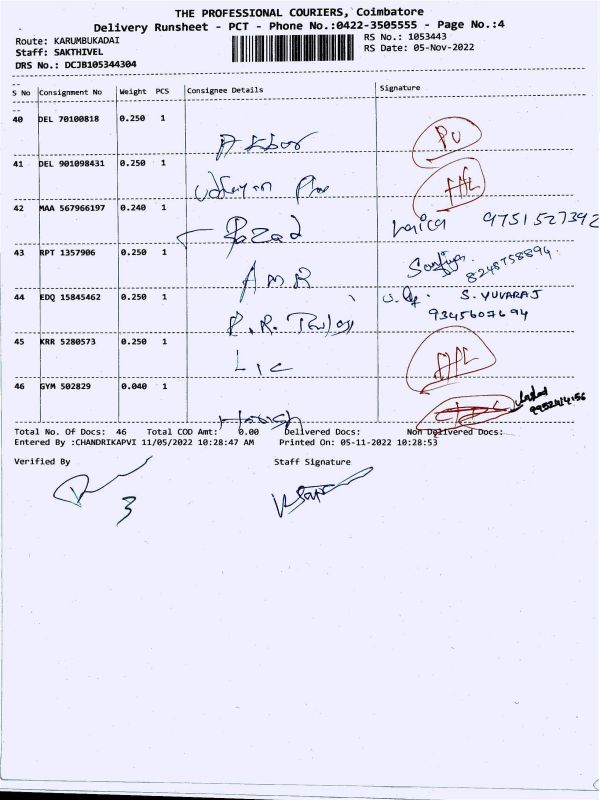 THE PROFESSIONAL COURIERS, Coimbatore
Delivery Runsheet - PCT - Phone No.:0422-3505555 - Page No.:4
Route: KARUMBUKADAI
RS No.: 1053443
Staff: SAKTHIVEL
RS Date: 05-Nov-2022
DRS No.: DCJB105344304
S No Consignment No Weight PCS Consignee Details Signature
40 DEL 70100818 0.250 1
Akbar PU
41 DEL 901098431 0.250 1
42 MAA 567966197 0.240 1
Fazad 9751527392
43 RPT 1357906 0.250 1
AMR 8248758894
44 EDQ 15845462 0.250 1
P.R. S. YUVARAJ
9345607694
45 KRR 5280573 0.250 1
LIC
46 GYM 502829 0.040 1
Harish
Total No. Of Docs: 46 Total COD Amt: 0.00 Delivered Docs: Non Delivered Docs:
Entered By :CHANDRIKAPVI 11/05/2022 10:28:47 AM Printed On: 05-11-2022 10:28:53
Verified By Staff Signature
3